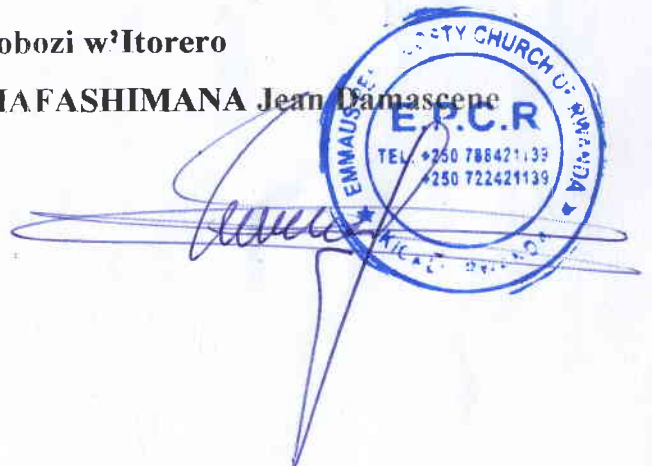 obozi w'Itorero
IAFASHIMANA Jean Damascene
EMMAUS CHURCH OF RWANDA
E.P.C.R
TEL: +250 788421139
+250 722421139
KIGALI RWANDA